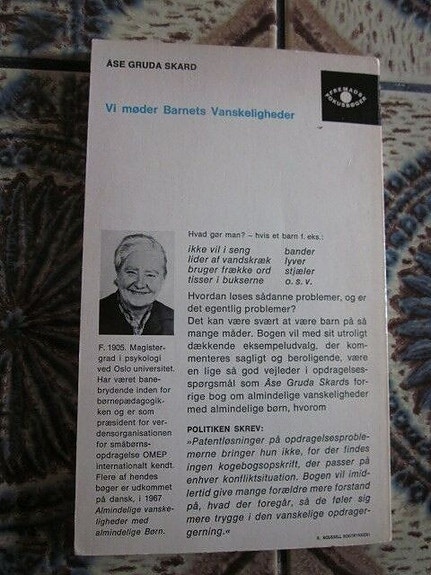 ÅSE GRUDA SKARD
FREMADS
FOKUSBØGER
Vi møder Barnets Vanskeligheder
Hvad gør man? – hvis et barn f. eks.:
ikke vil i seng
lider af vandskræk
bruger frække ord
tisser i bukserne
bander
lyver
stjæler
o. s. v.
Hvordan løses sådanne problemer, og er
det egentlig problemer?
Det kan være svært at være barn på så
mange måder. Bogen vil med sit utroligt
dækkende eksempeludvalg, der kom-
menteres sagligt og beroligende, være
en lige så god vejleder i opdragelses-
spørgsmål som Åse Gruda Skards for-
rige bog om almindelige vanskeligheder
med almindelige børn, hvorom
POLITIKEN SKREV:
»Patentløsninger på opdragelsesproble-
merne bringer hun ikke, for der findes
ingen kogebogsopskrift, der passer på
enhver konfliktsituation. Bogen vil imid-
lertid give mange forældre mere forstand
på, hvad der foregår, så de føler sig
mere trygge i den vanskelige opdrager-
gerning.«
F. 1905. Magister-
grad i psykologi
ved Oslo universitet.
Har været bane-
brydende inden for
børnepædagogik-
ken og er som
præsident for ver-
densorganisationen
for småbørns-
opdragelse OMEP
internationalt kendt.
Flere af hendes
bøger er udkommet
på dansk, i 1967
Almindelige vanske-
ligheder med
almindelige Børn.